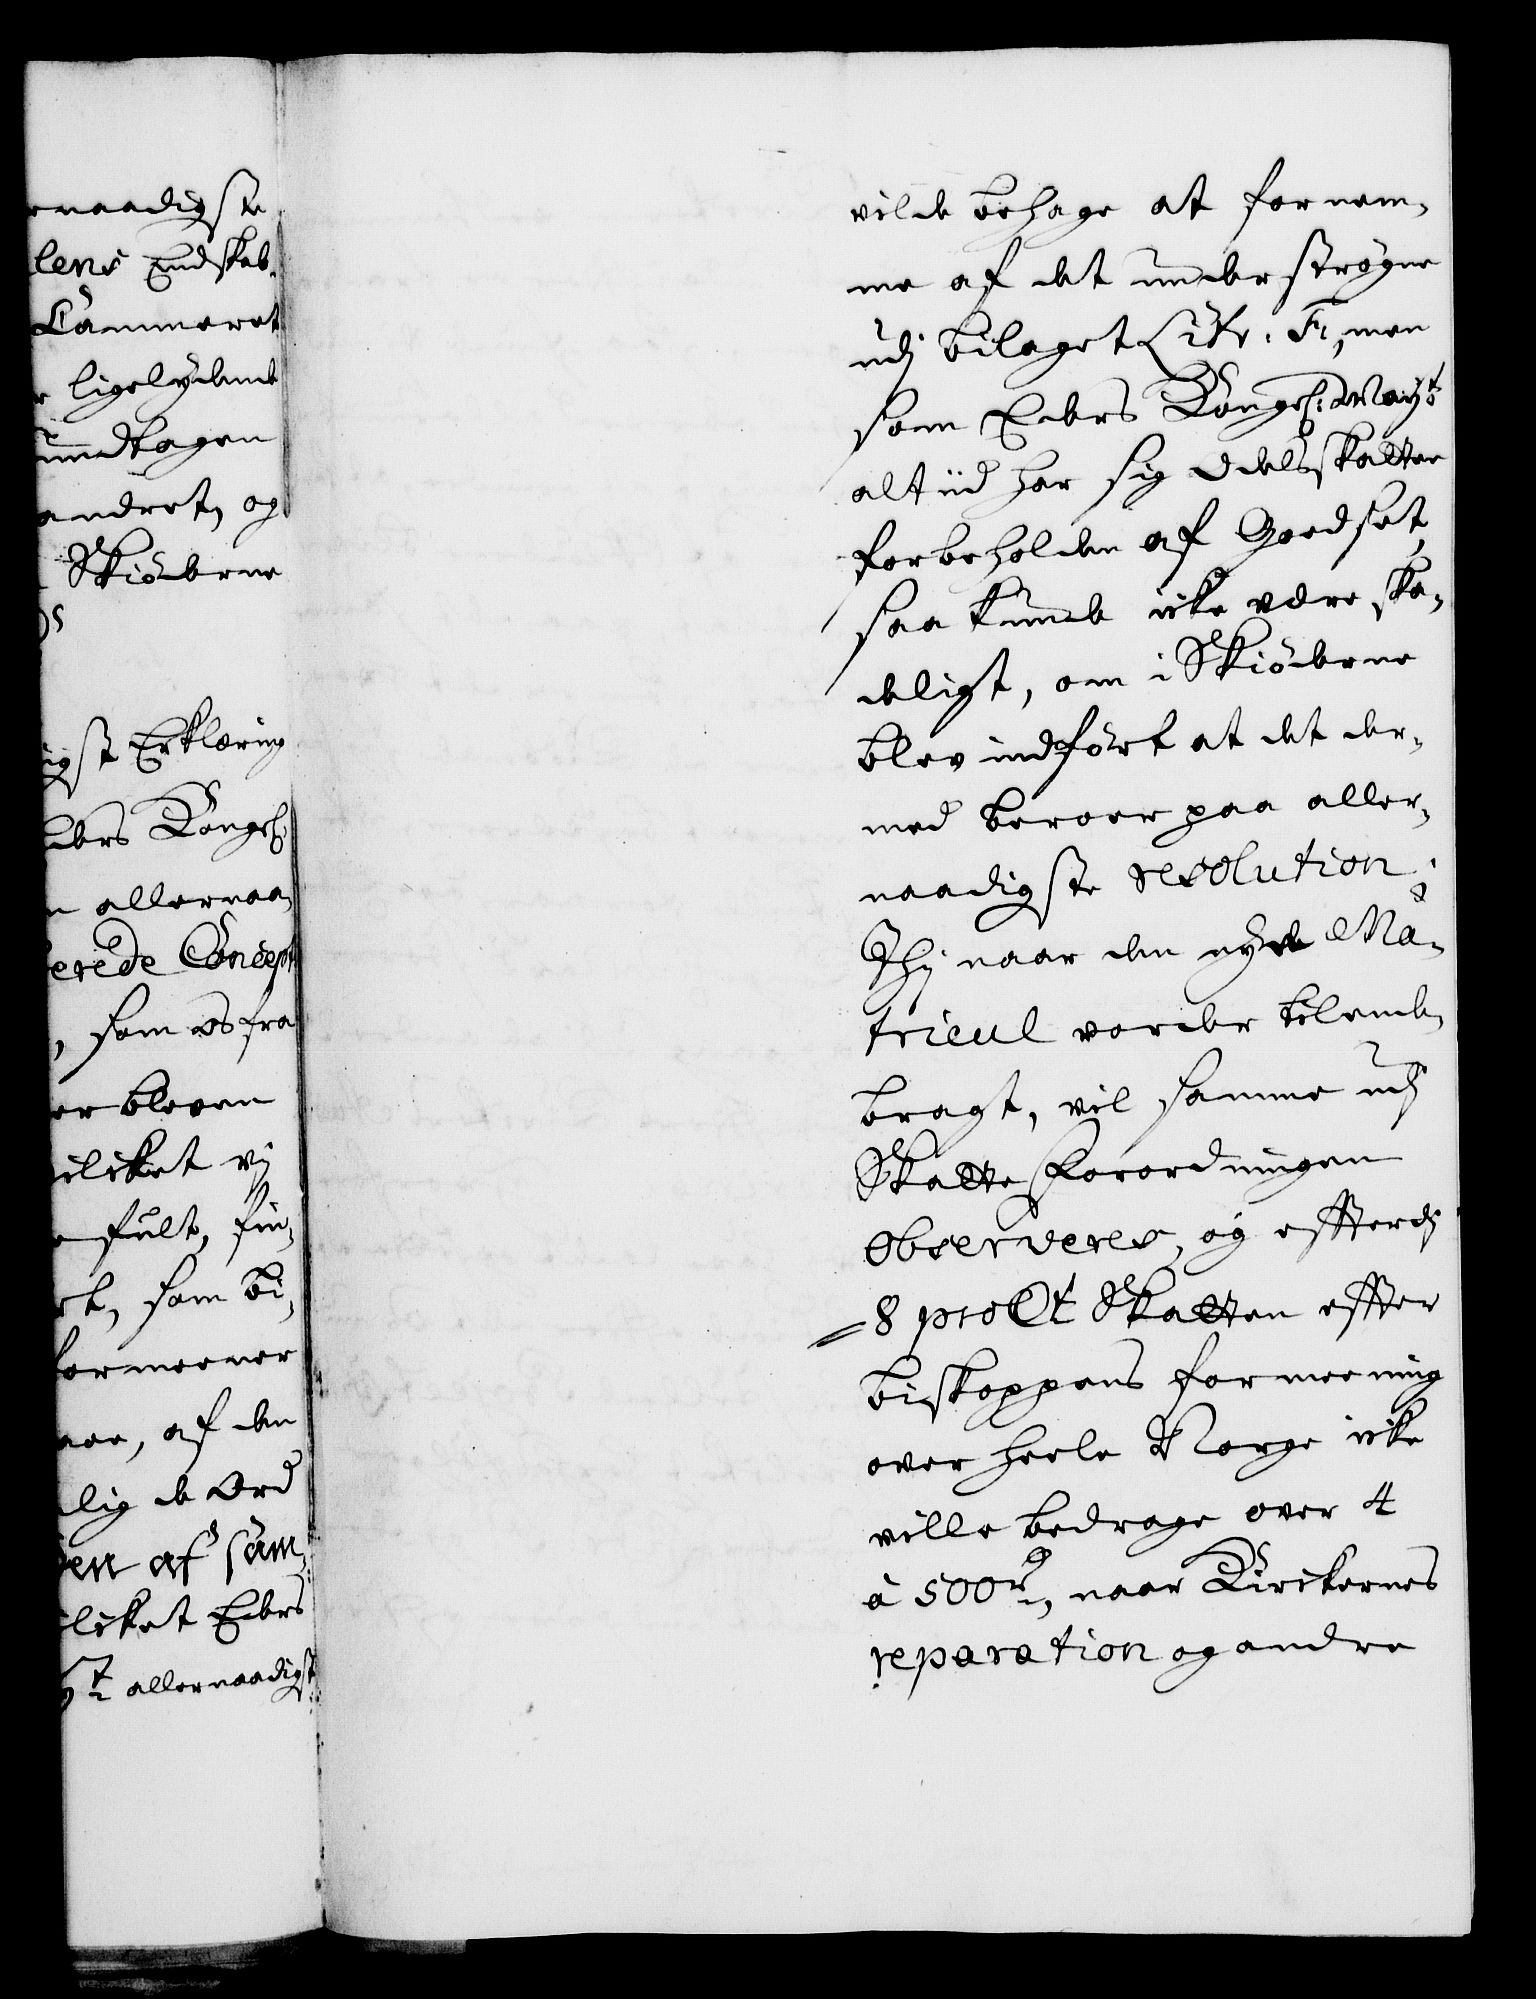 ernaadigste
lens Endskab.
Cammeret
ligelydende
undtagen
andret, og
Skiöderne
igst Erklæring
ders Kongel:
allernaa-
erede Concept
, som os fra
er bleven
ilcket vj
fult, fin-
rt, som bi-
formeener
, af den
lig de Ord
den af sam-
ilcket Eders
yt: allernaadigst
vilde behage at fornem-
me af det underströgne
udj bilaget Litr: F, men
som Eders Kongel: Mayt:
altiid har sig Odelsskatter
forbeholden af Goedset,
saa kunde icke være ska-
deligt, om i Skiöderne
blev indfört at det der-
med beroer paa aller-
naadigste resolution;
Thj naar den nye Ma-
tricul vorder tilende-
bragt, vil samme udj
Skatte Forordningen
observeres, og effterdj
8 pro Ct Skatten effter
biskoppens formeening
over heele Norge icke
ville bedrage over 4
à 500 rd:, naar Kirckernes
reparation og andre